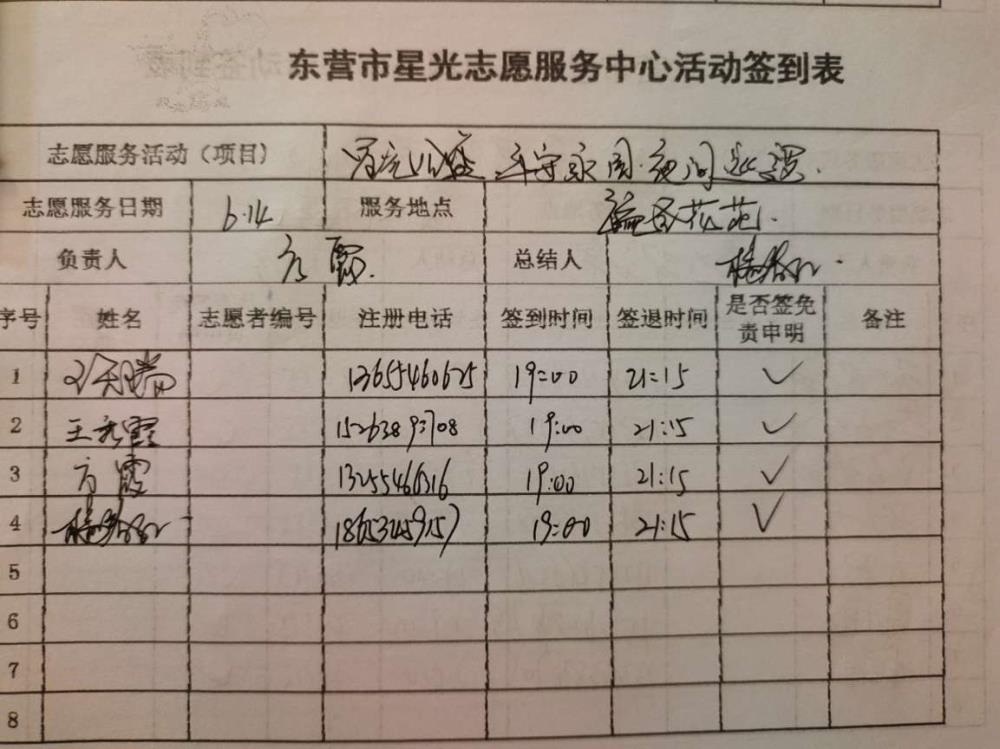 东营市星光志愿服务中心活动签到表
志愿服务活动（项目） 平安 夜间巡逻.
志愿服务日期 6.14 服务地点 花苑.
负责人 方霞. 总结人
序号 姓名 志愿者编号 注册电话 签到时间 签退时间 是否签免责申明 备注
1 13655460625 19:00 21:15 ✓
2 王秀霞 15263893708 19:00 21:15 ✓
3 方霞 13255466316 19:00 21:15 ✓
4 18653459157 19:00 21:15 ✓
5
6
7
8